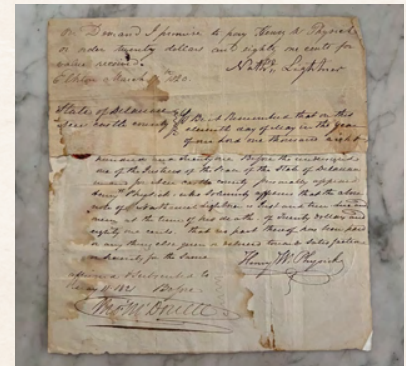 On Demand I promise to pay Henry W Physick
or order twenty dollars and eighty one cents for
value received.
Elkton March 1820.
Nathn. Lightner
State of Delaware
New castle county
Be it Remembered that on this
eleventh day of May in the year
of our Lord one thousand eight
hundred and twenty one Before the undersigned
one of the Justices of the Peace of the State of Delaware
in and for New castle county personally appeared
Henry Physick who solemnly affirms that the above
note of Nathaniel Lightner is Just and true and
money at the time of his death of Twenty dollars and
eighty one cents. that no part thereof has been paid
or any thing else given or received towards Satisfaction
or Security for the Same
affirmed & subscribed to
May 11 1821 Before
Henry W. Physick
McDowell